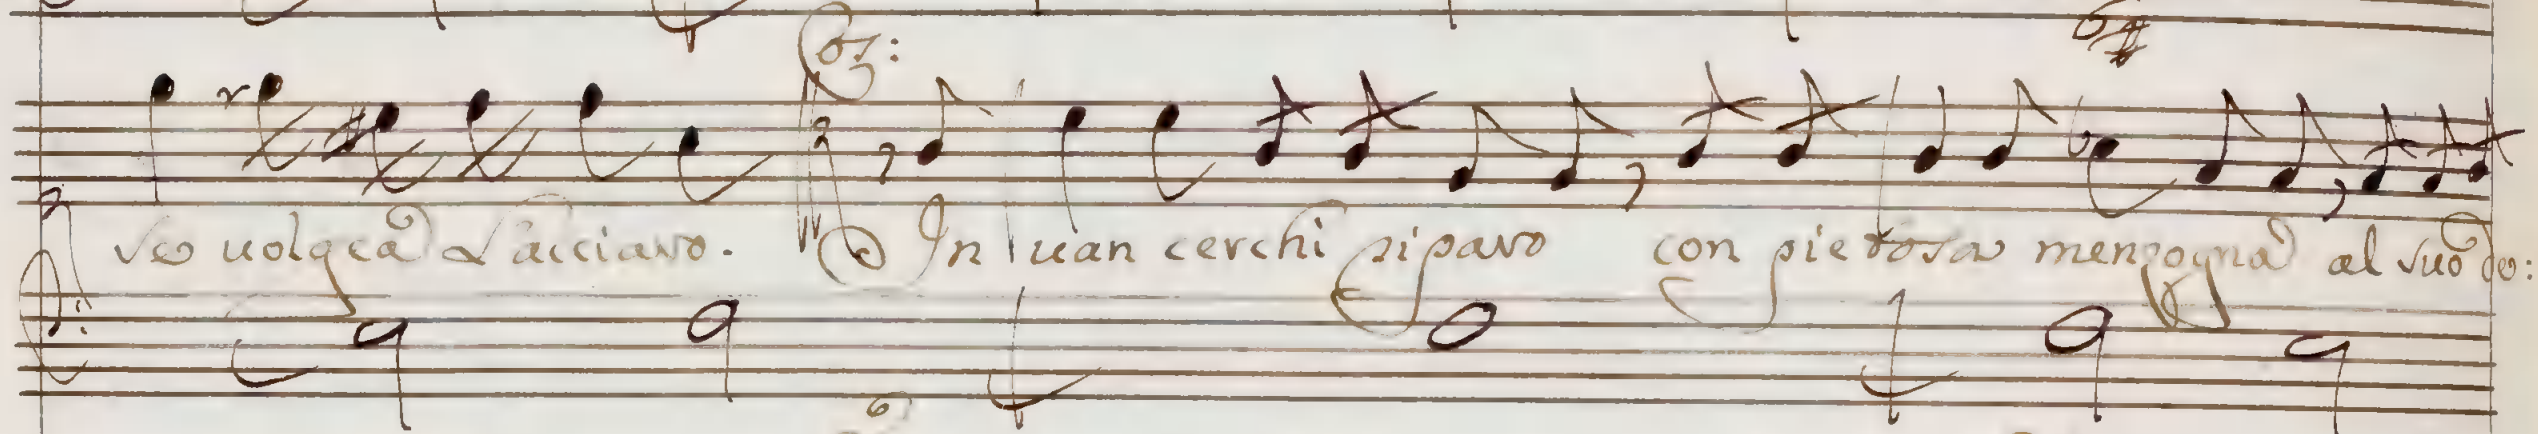 Cor:
se uolgea l'acciaro. In uan cerchi riparo con pietosa menzogna al suo do: